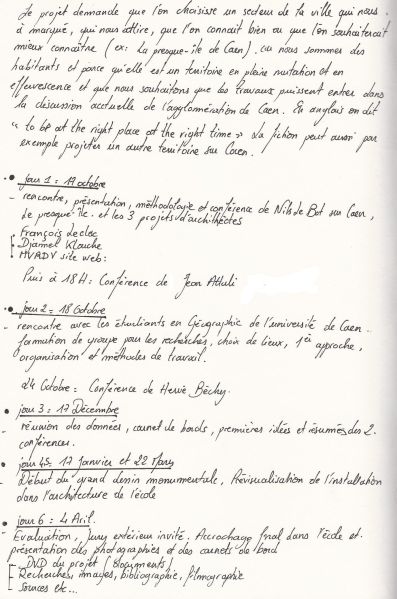 Le projet demande que l'on choisisse un secteur de la ville qui nous
a marqué, qui nous attire, que l'on connait bien ou que l'on souhaiterait
mieux connaître (ex: la presque-île de Caen). car nous sommes des
habitants et parce qu'elle est un territoire en pleine mutation et en
effervescence et que nous souhaitons que les travaux puissent entrer dans
la discussion actuelle de l'agglomération de Caen. En anglais on dit
"to be at the right place at the right time" La fiction peut aussi par
exemple projeter un autre territoire sur Caen.
Jour 1 = 17 octobre
- rencontre, présentation, méthodologie et conférence de Nils de Bot sur Caen,
la presque-île. et les 3 projets d'architectes
François Leclec
Djamel Klouche
MVRDV site web:
Puis à 18H: Conférence de Jean Attuli
Jour 2 = 18 Octobre
- rencontre avec les étudiants en Géographie de l'université de Caen.
formation de groupe pour les recherches, choix de lieux, 1ère approche,
organisation et méthodes de travail.
24 Octobre = Conférence de Hervé Béchy.
jour 3 = 17 Décembre
- réunion des données, carnet de bords, premières idées et résumés des 2
conférences.
jour 45 = 17 Janvier et 22 Mars
- Début du grand dessin monumentale, Prévisualisation de l'installation
dans l'architecture de l'école
jour 6 = 4 Avril.
- Evaluation, jury extérieur invité. Accrochage final dans l'école et
présentation des photographies et des carnets de bord
- DVD du projet (documents)
- Recherches, images, bibliographie, filmographie
- Sources etc...